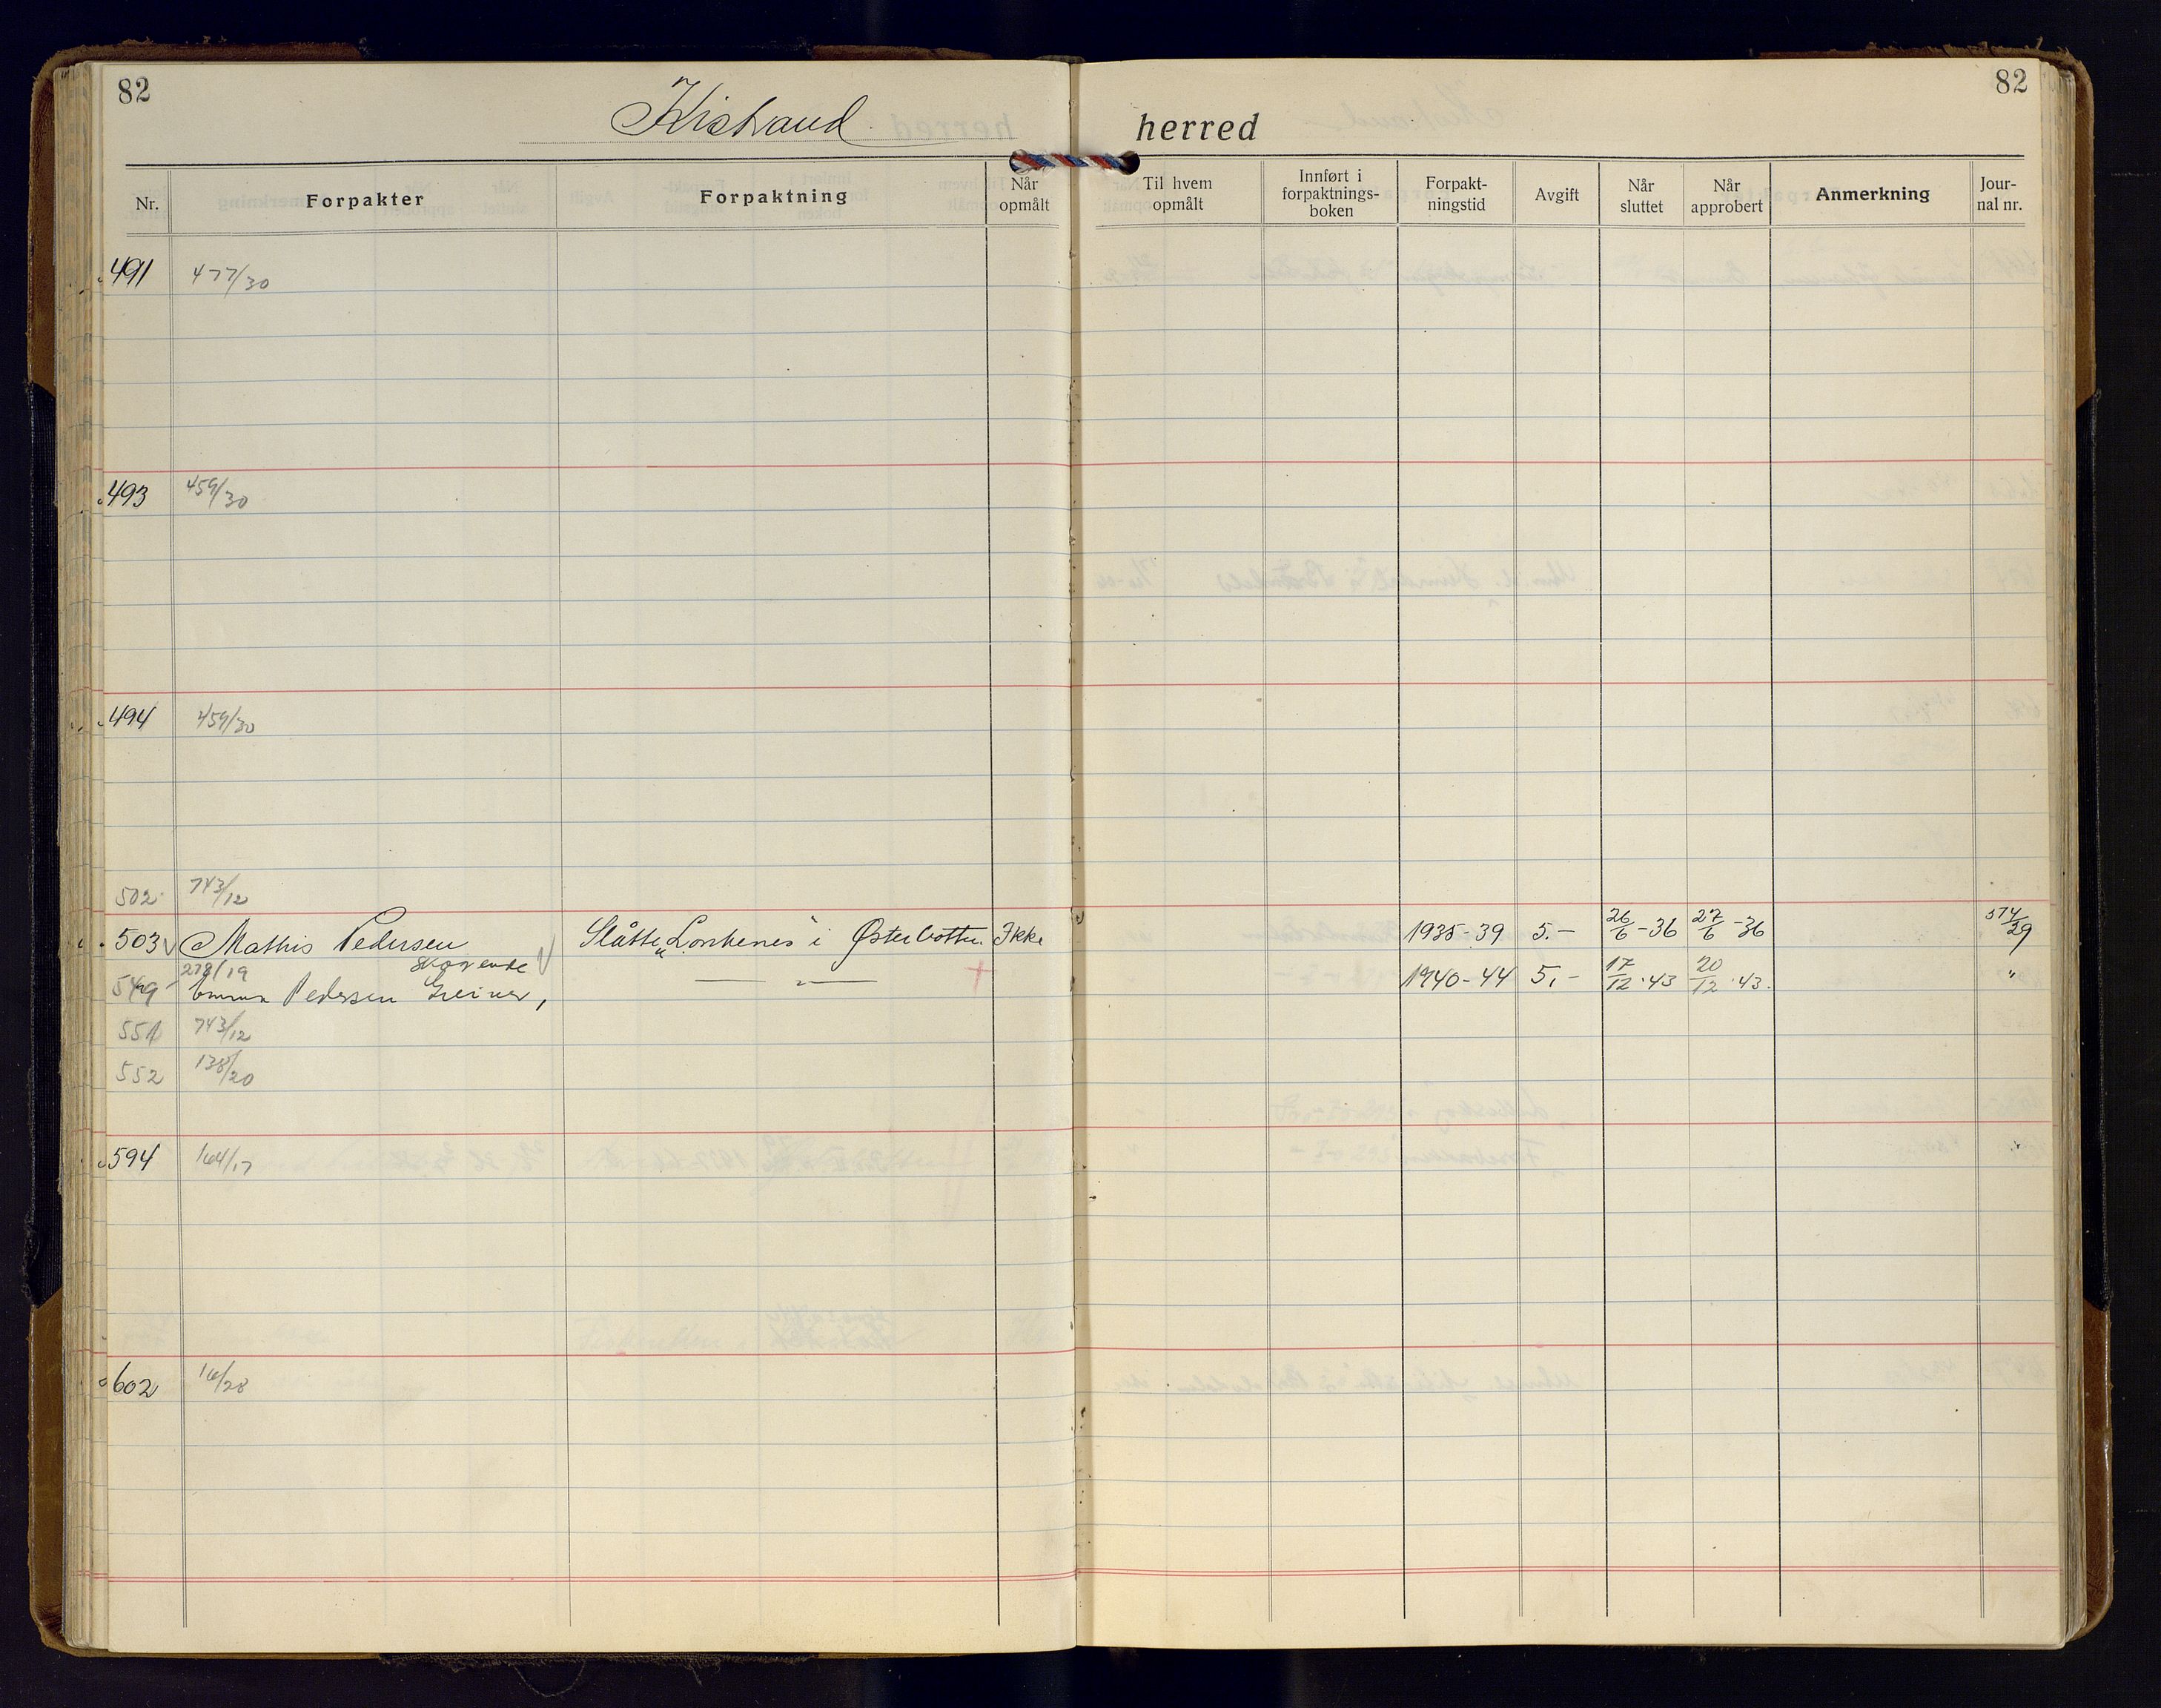 82
82
Kistrand herred
Nr. Forpakter Forpaktning Når opmålt Til hvem opmålt Innført i forpaktnings-boken Forpakt-ningstid Avgift Når sluttet Når approbert Anmerkning Jour-nal nr.
491 477/30
493 459/30
494 459/30
502 743/12
503 Mathis Pedersen Slåtte i Østerbotten. Ikke 1935-39 5.- 26/6-36 27/6-36 574/29
278/19 Skogende
549 Emma Pedersen Greiner, — " — 1940-44 5,- 17/12-43 20/12-43. "
551 743/12
552 138/20
594 164/17
602 16/28